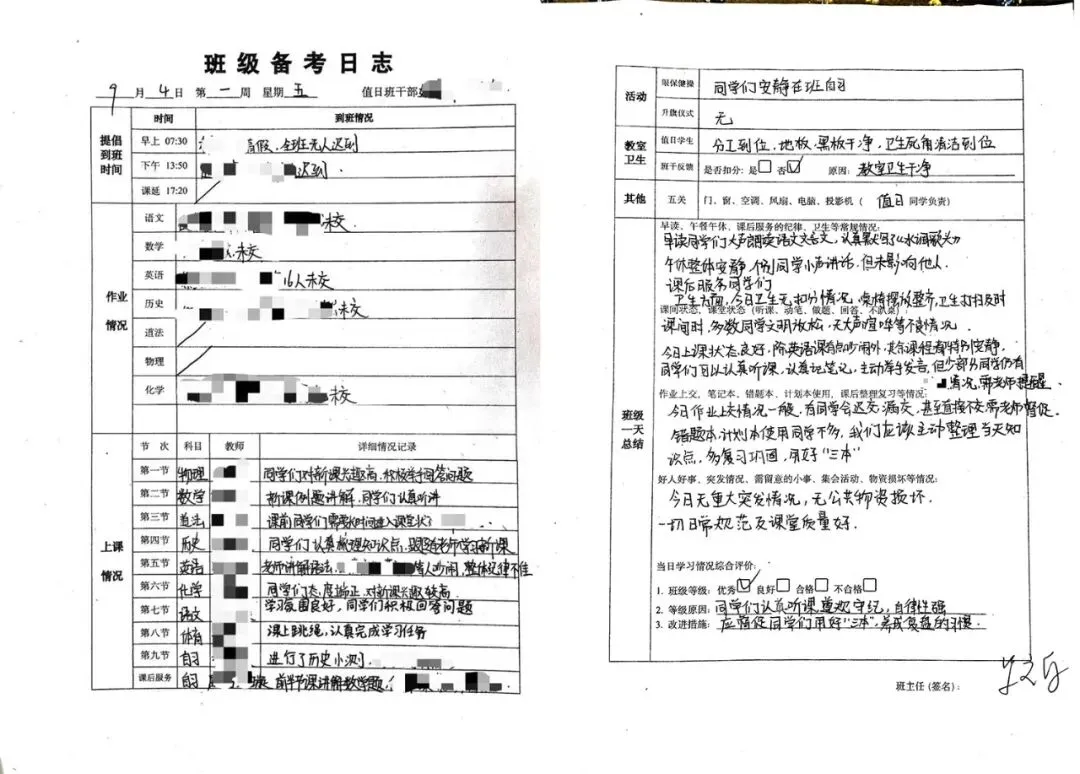 班级备考日志
9月4日 第一周 星期五 值日班干部
时间 到班情况
提倡到班时间
早上 07:30 假,全班无人迟到
下午 13:50 迟到.
课延 17:20
作业情况
语文 未交
数学 未交
英语 16人未交
历史 未交
道法
物理
化学 未交
上课情况
节 次 科目 教师 详细情况记录
第一节 物理 同学们对新课兴趣高,积极举手回答问题
第二节 数学 新课例题讲解,同学们认真听讲
第三节 道法 课前同学们需要时间进入课堂状
第四节 历史 同学们认真梳理知识点,跟随老师学习新课
第五节 英语 老师讲解语法, 吵闹,整体纪律不佳
第六节 化学 同学们态度端正,对新课兴趣较高
第七节 语文 学习氛围良好,同学们积极回答问题
第八节 体育 课上跳绳,认真完成学习任务
第九节 自习 进行了历史小测
课后服务 自习 前半节课讲解数学题
活动
眼保健操 同学们安静在班自习
升旗仪式 无
教室卫生
值日学生 分工到位,地板,黑板干净,卫生死角清洁到位
班干反馈 是否扣分:是□ 否☑ 原因:教室卫生干净
其他 五关 门、窗、空调、风扇、电脑、投影机( 值日 同学负责)
班级一天总结
早读、午餐午休、课后服务的纪律、卫生等常规情况:
早读同学们大声朗读语文古文,认真默写了《水调歌头》
午休整体安静,个别同学小声讲话,但未影响他人.
课后服务同学们
卫生方面,今日卫生无扣分情况,桌椅摆放整齐,卫生打扫及时
课间状态、课堂状态(听课、动笔、做题、回答、不趴桌):
课间时,多数同学文明放松,无大声喧哗等不良情况.
今日上课状态良好,除英语课有点吵闹外,其余课程都特别安静.
同学们可以认真听课,认真记笔记,主动举手发言,但少部分同学仍有
情况,需老师提醒.
作业上交,笔记本、错题本、计划本使用,课后整理复习等情况:
今日作业上交情况一般,有同学会迟交,漏交,甚至直接不交需老师督促.
错题本,计划本使用同学不多,我们应该主动整理当天知
识点,多复习巩固,用好"三本"
好人好事、突发情况、需留意的小事、集会活动、物资损坏等情况:
今日无重大突发情况,无公共物资损坏.
一切日常规范及课堂质量好.
当日学习情况综合评价:
1. 班级等级:优秀☑ 良好□ 合格□ 不合格□
2. 等级原因:同学们认真听课,遵规守纪,自律性强
3. 改进措施:应督促同学们用好"三本",养成复盘的习惯.
班主任(签名):